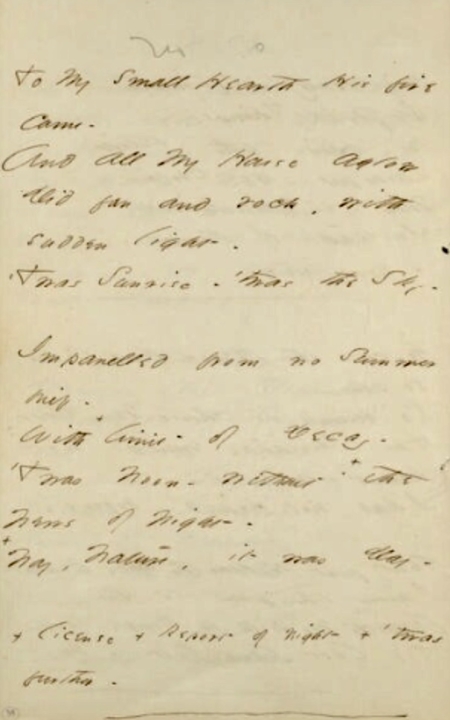 To my small Hearth His fire
came -
And all my House aglow
Did fan and rock, with
sudden light -
'Twas Sunrise - 'twas the Sky -
Impanelled from no Summer
brief -
With + limit - of Decay -
'Twas Noon - without + the
News of Night -
+ Nay, Nature, it was Day -
+ License + Report of Night + 'twas
further -